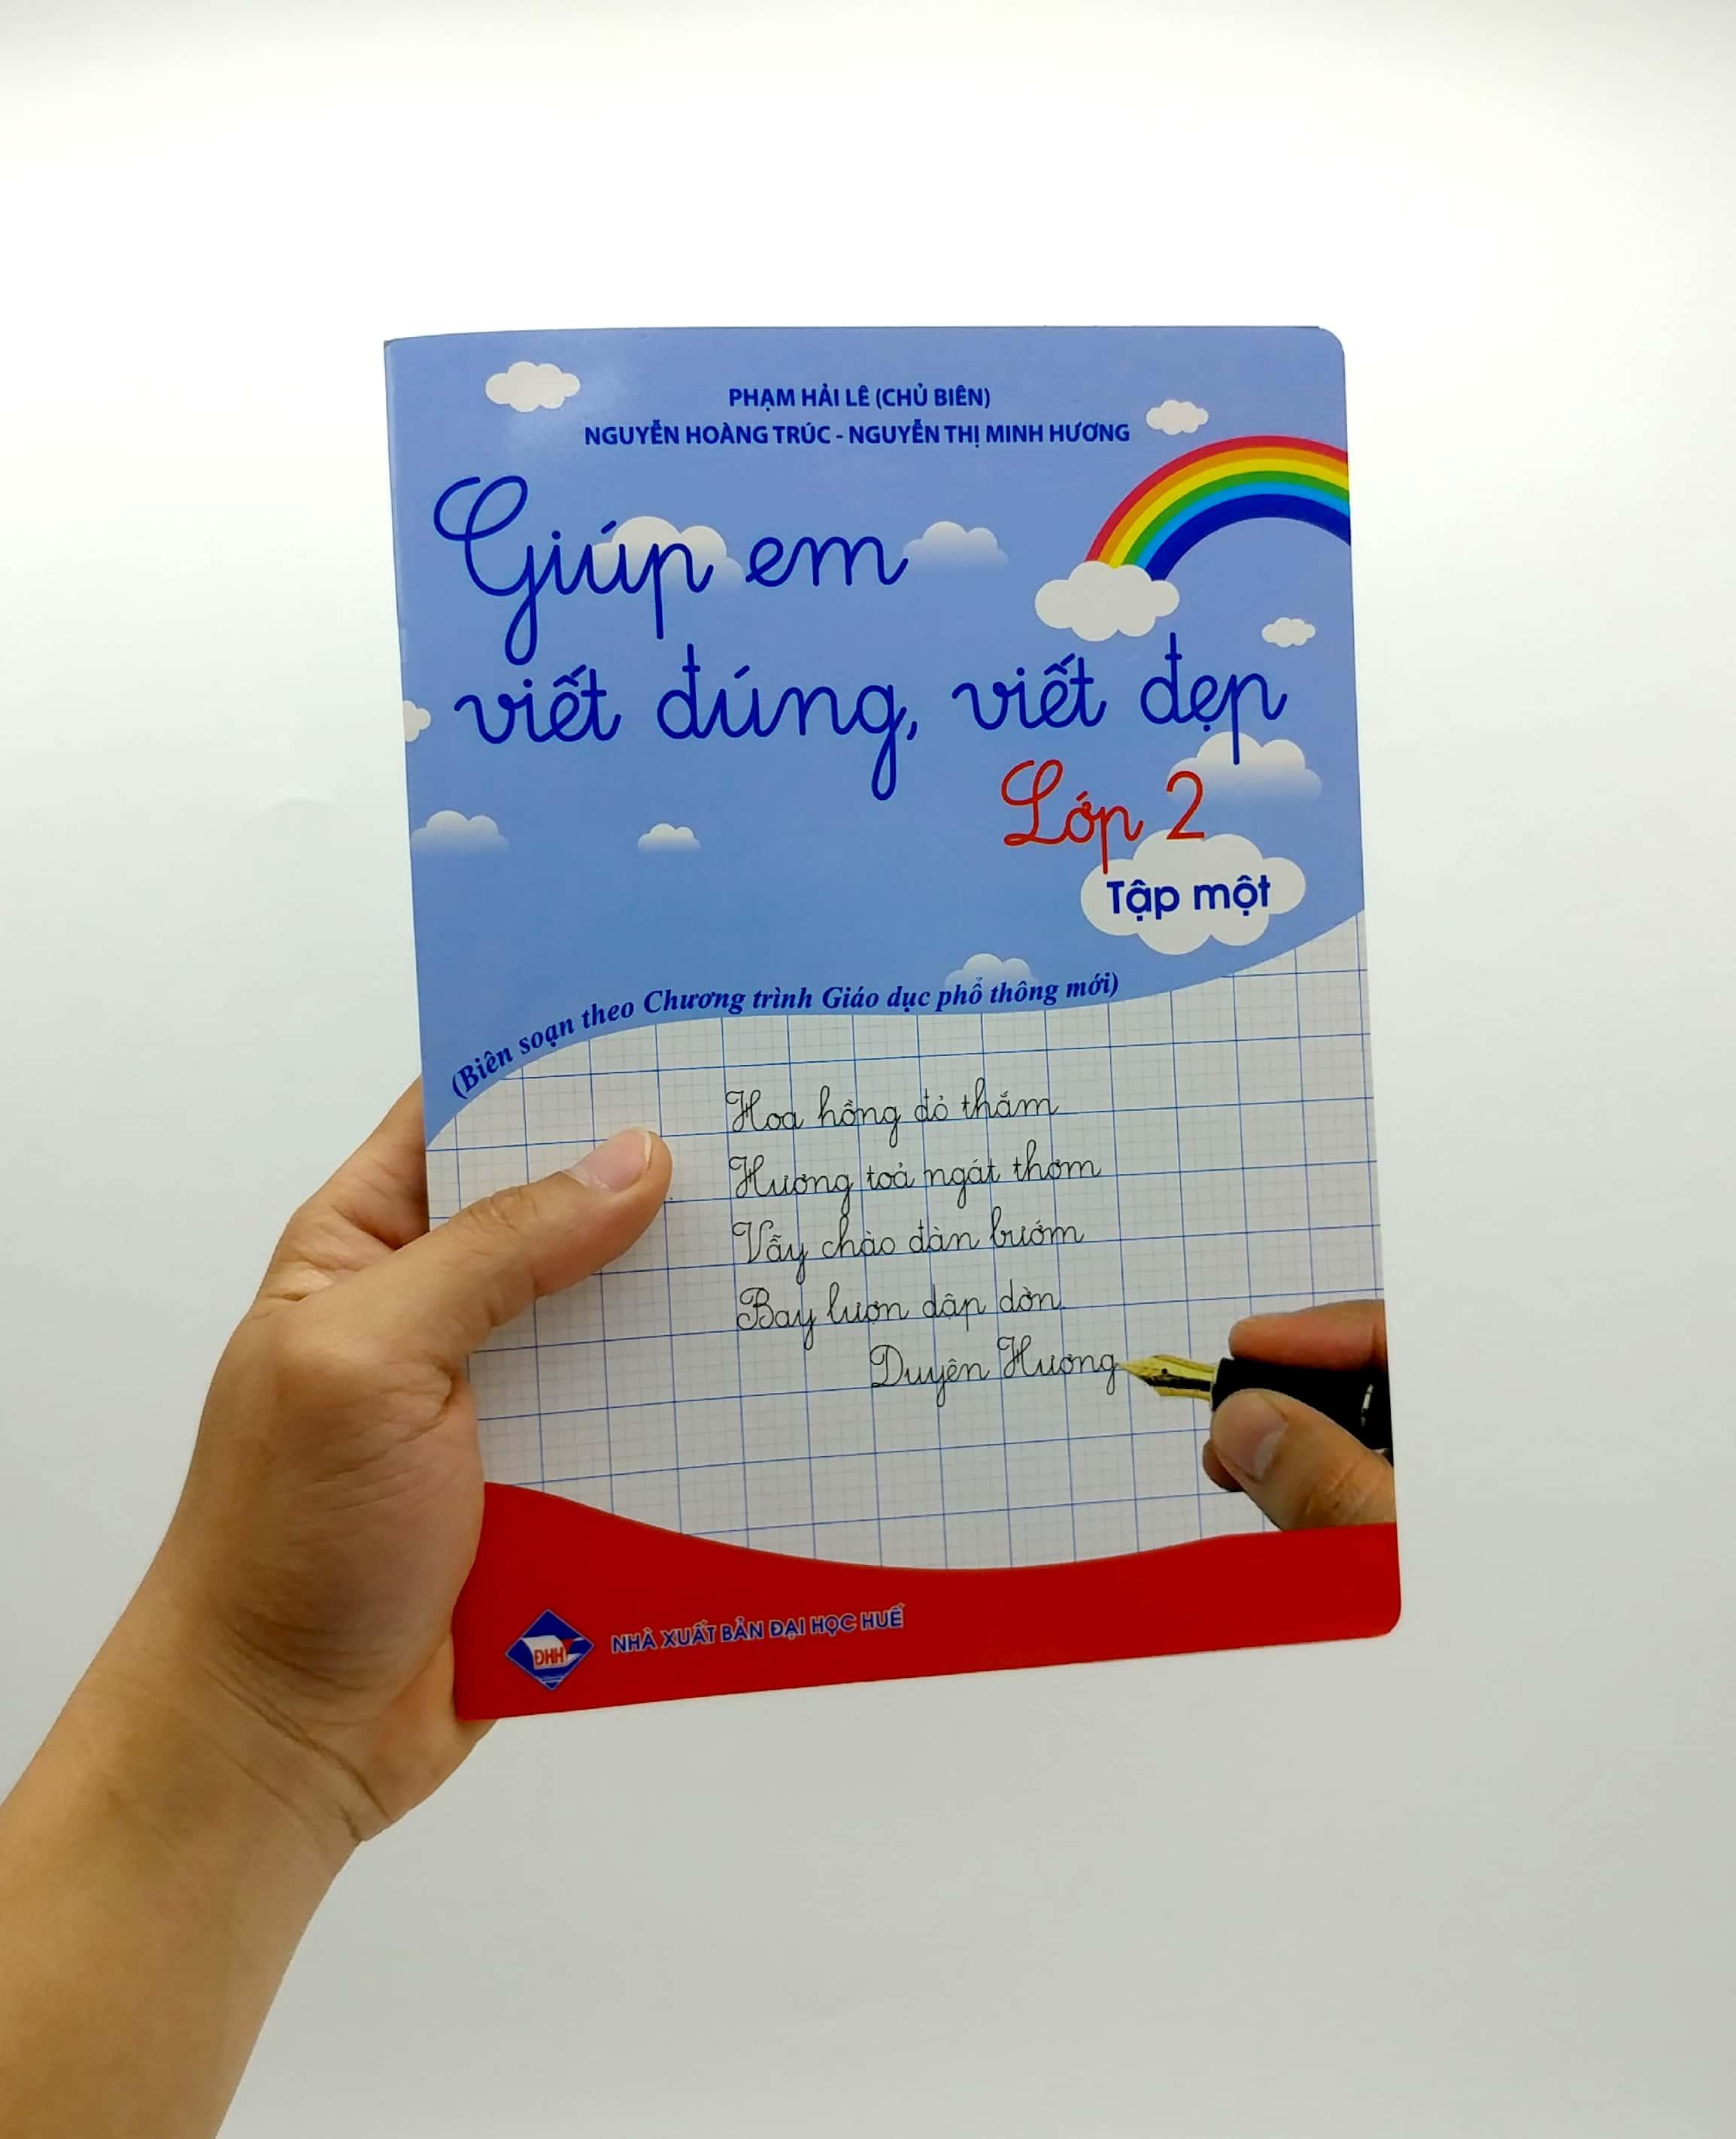 PHẠM HẢI LÊ (CHỦ BIÊN)
NGUYỄN HOÀNG TRÚC - NGUYỄN THỊ MINH HƯƠNG
Giúp em
viết đúng, viết đẹp
Lớp 2
Tập một
(Biên soạn theo Chương trình Giáo dục phổ thông mới)
Hoa hồng đỏ thắm
Hương toả ngát thơm
Vẫy chào đàn bướm
Bay lượn dập dờn.
Duyên Hương
ĐHH
NHÀ XUẤT BẢN ĐẠI HỌC HUẾ